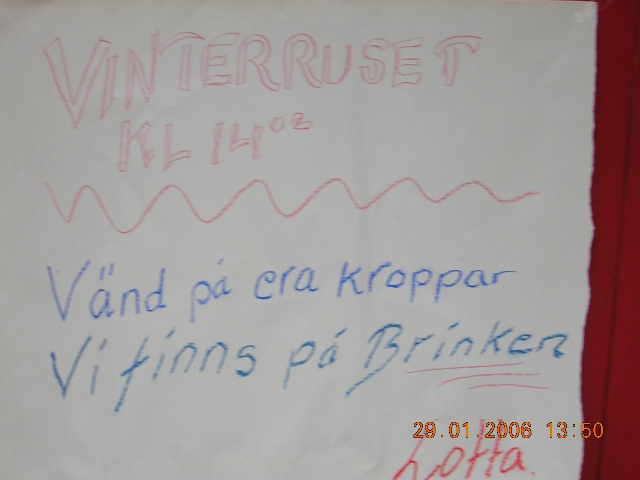 VINTERRUSET
KL 14⁰²
Vänd på era kroppar
Vi finns på Brinken
29.01.2006 13:50
Lotta.